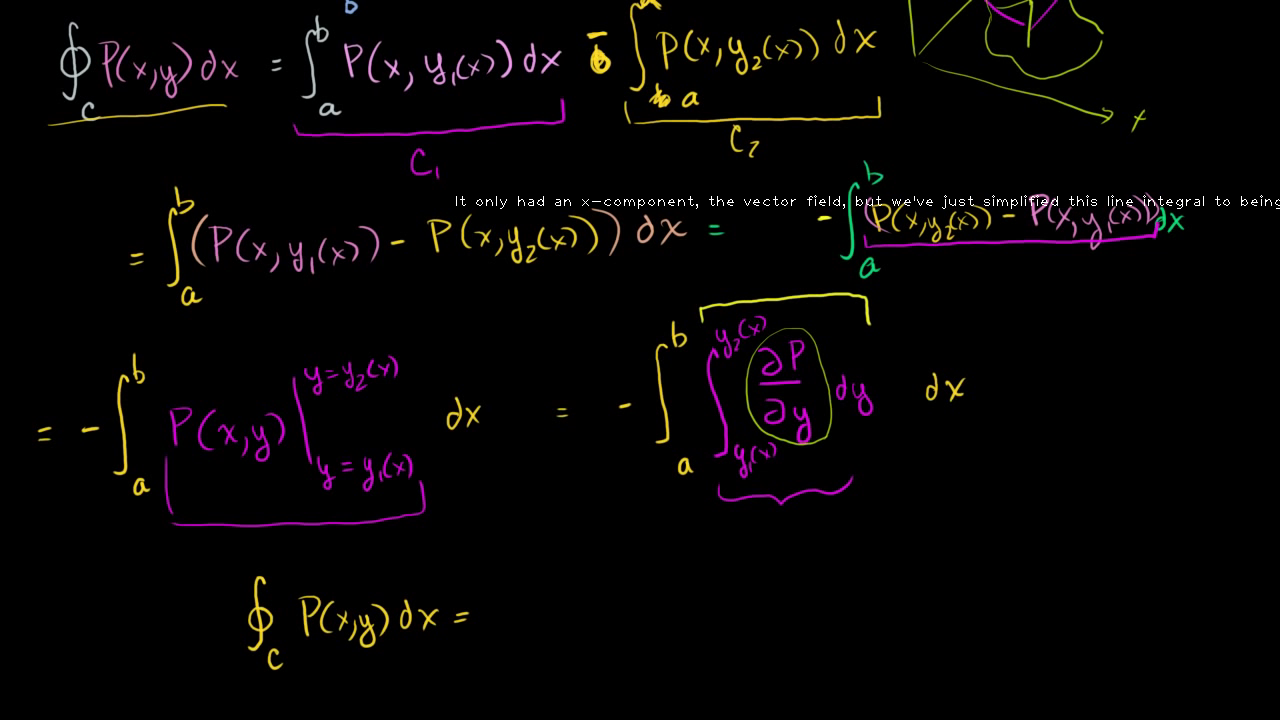 ∮_C P(x,y) dx = ∫_a^b P(x, y₁(x)) dx - ∫_a P(x, y₂(x)) dx
C₁ C₂ x
It only had an x-component, the vector field, but we've just simplified this line integral to being
= ∫_a^b (P(x, y₁(x)) - P(x, y₂(x))) dx = -∫_a^b (P(x, y₂(x)) - P(x, y₁(x))) dx
= -∫_a^b P(x,y) | y = y₂(x) y = y₁(x) dx = -∫_a^b ∫_{y₁(x)}^{y₂(x)} ∂P/∂y dy dx
∮_C P(x,y) dx =